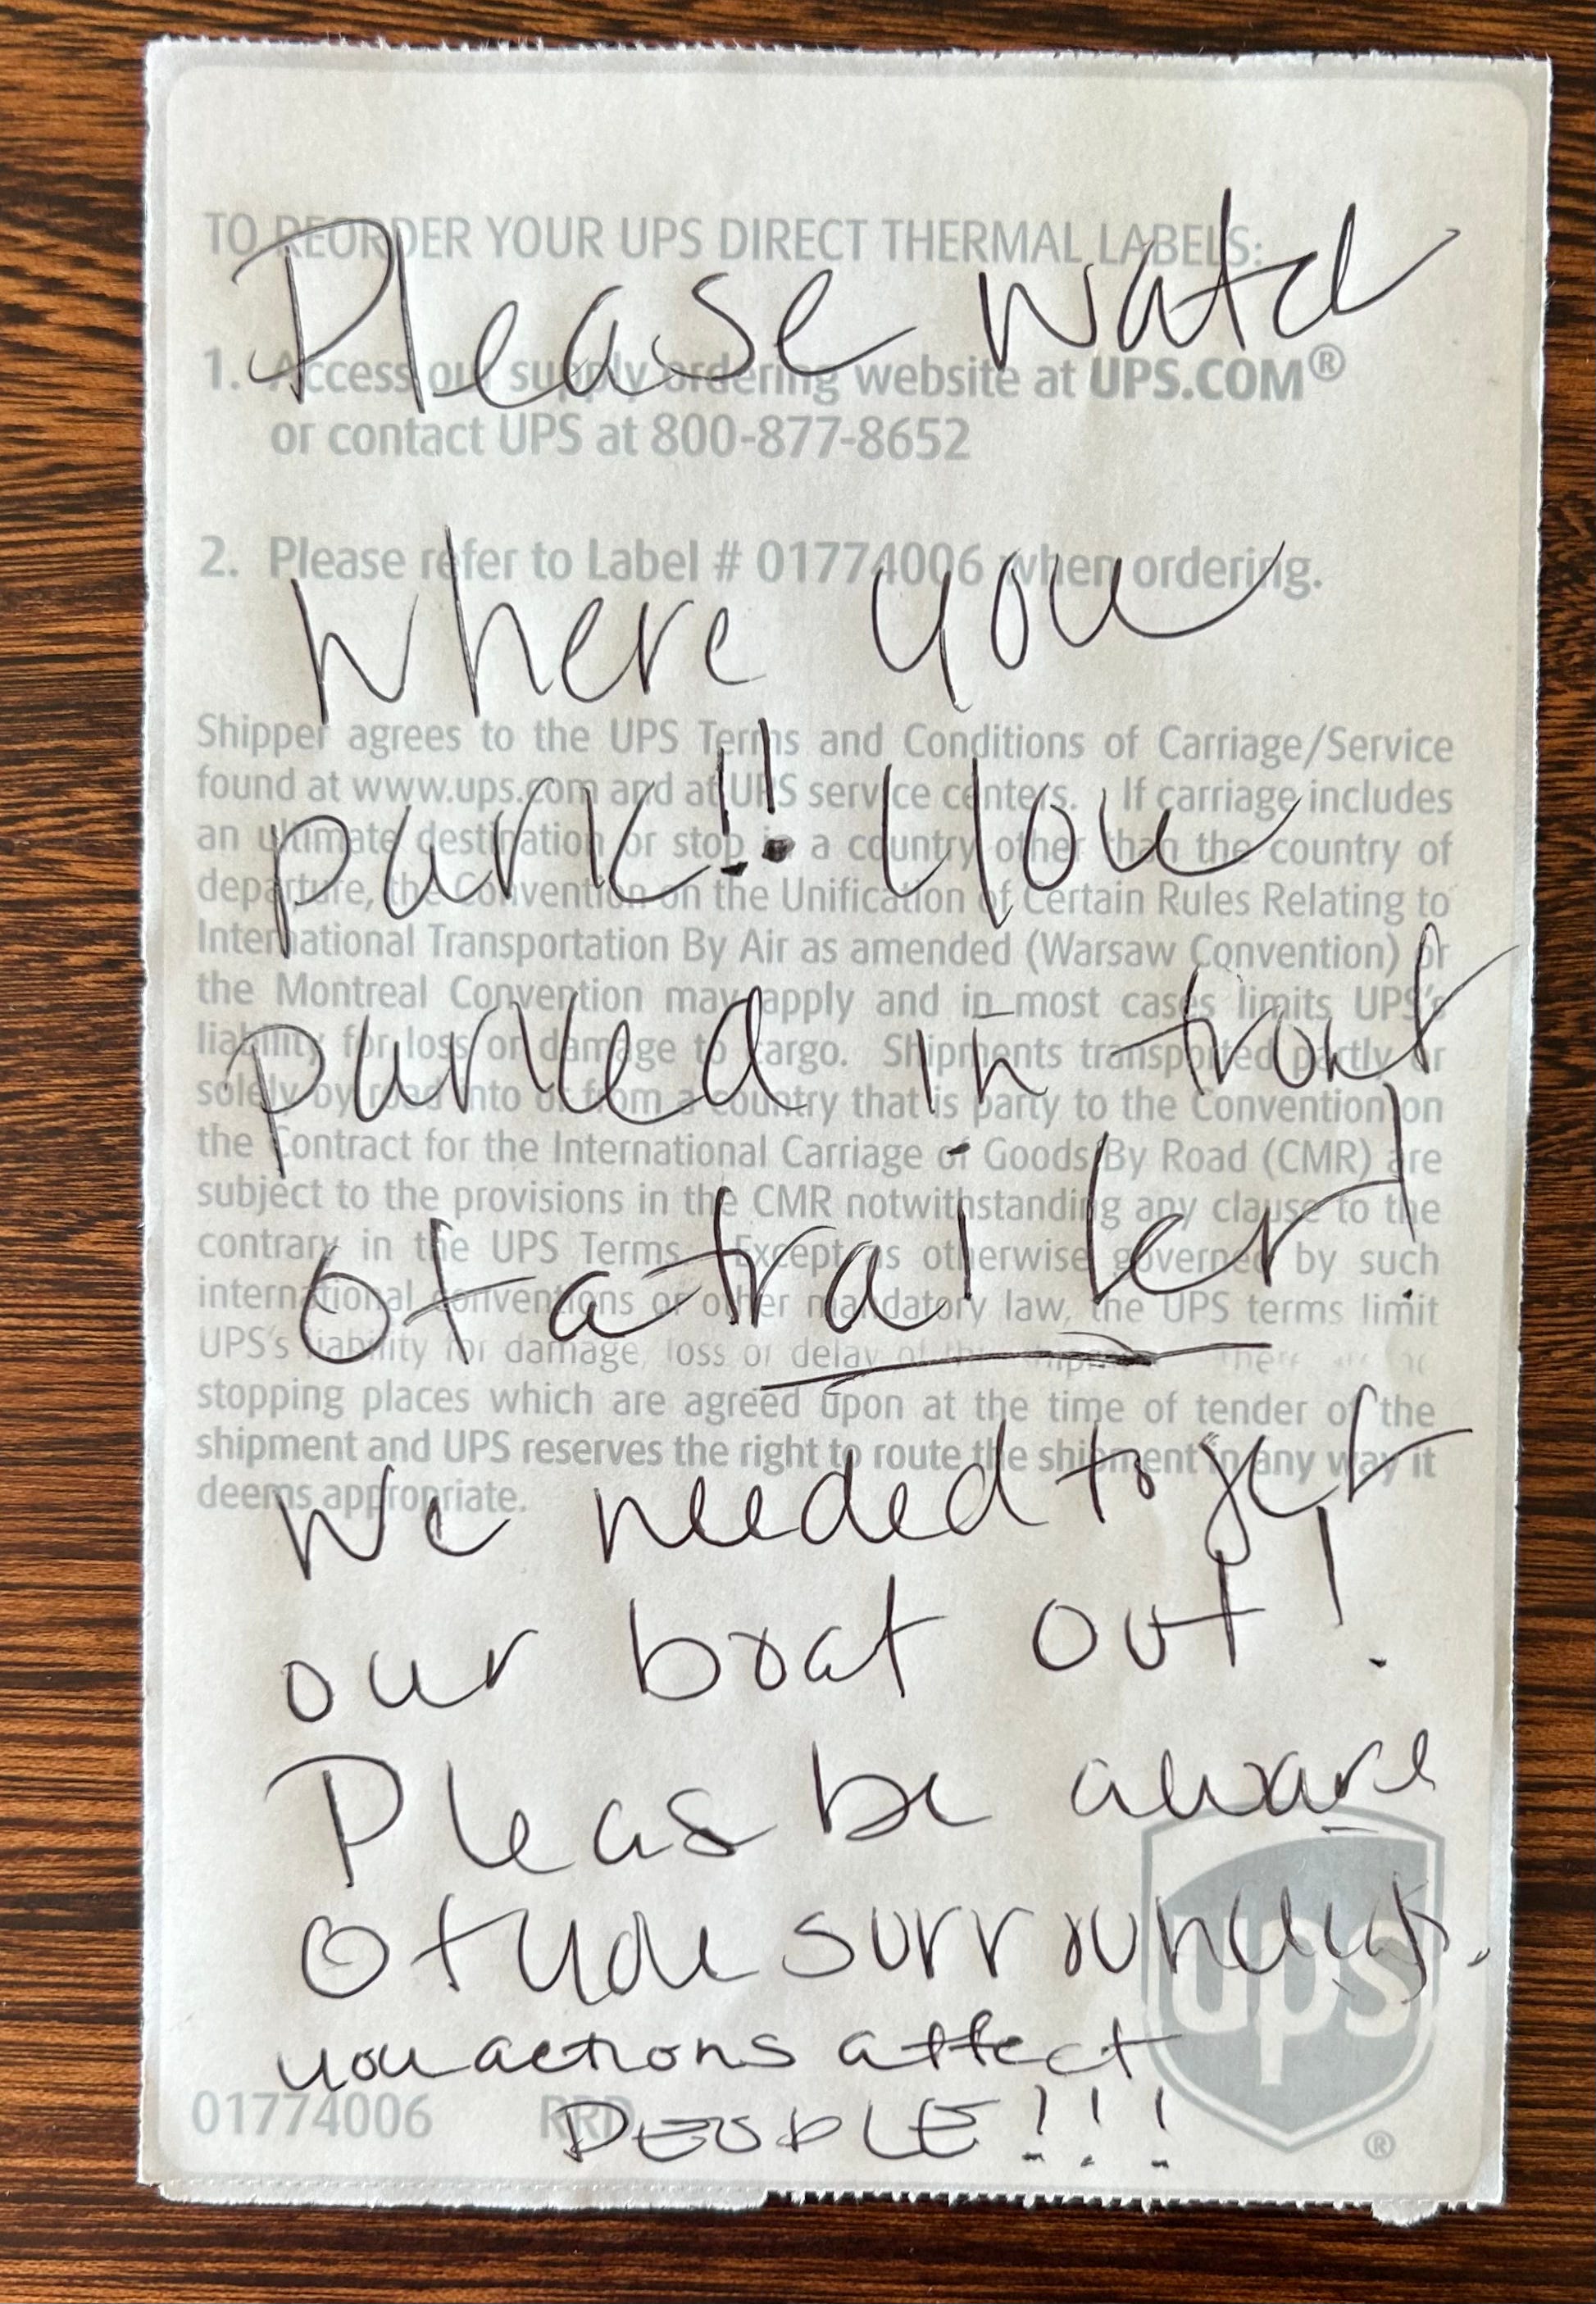 TO REORDER YOUR UPS DIRECT THERMAL LABELS:
Please watch
1. Access our supply ordering website at UPS.COM®
or contact UPS at 800-877-8652
2. Please refer to Label # 01774006 when ordering.
where you
Shipper agrees to the UPS Terms and Conditions of Carriage/Service
found at www.ups.com and at UPS service centers. If carriage includes
park!! You
an ultimate destination or stop in a country other than the country of
departure, the Convention on the Unification of Certain Rules Relating to
International Transportation By Air as amended (Warsaw Convention) or
the Montreal Convention may apply and in most cases limits UPS's
parked in front
liability for loss or damage to cargo. Shipments transported partly or
solely by road into or from a country that is party to the Convention on
the Contract for the International Carriage of Goods By Road (CMR) are
subject to the provisions in the CMR notwithstanding any clause to the
of a trailer!
contrary in the UPS Terms. Except as otherwise governed by such
international conventions or other mandatory law, the UPS terms limit
UPS's liability for damage, loss or delay of this shipment. There are no
stopping places which are agreed upon at the time of tender of the
shipment and UPS reserves the right to route the shipment in any way it
deems appropriate.
We needed to get
our boat out!
Pleas be aware
of you surroundings.
you actions affect
PEOPLE!!!
01774006 RRD
ups
®